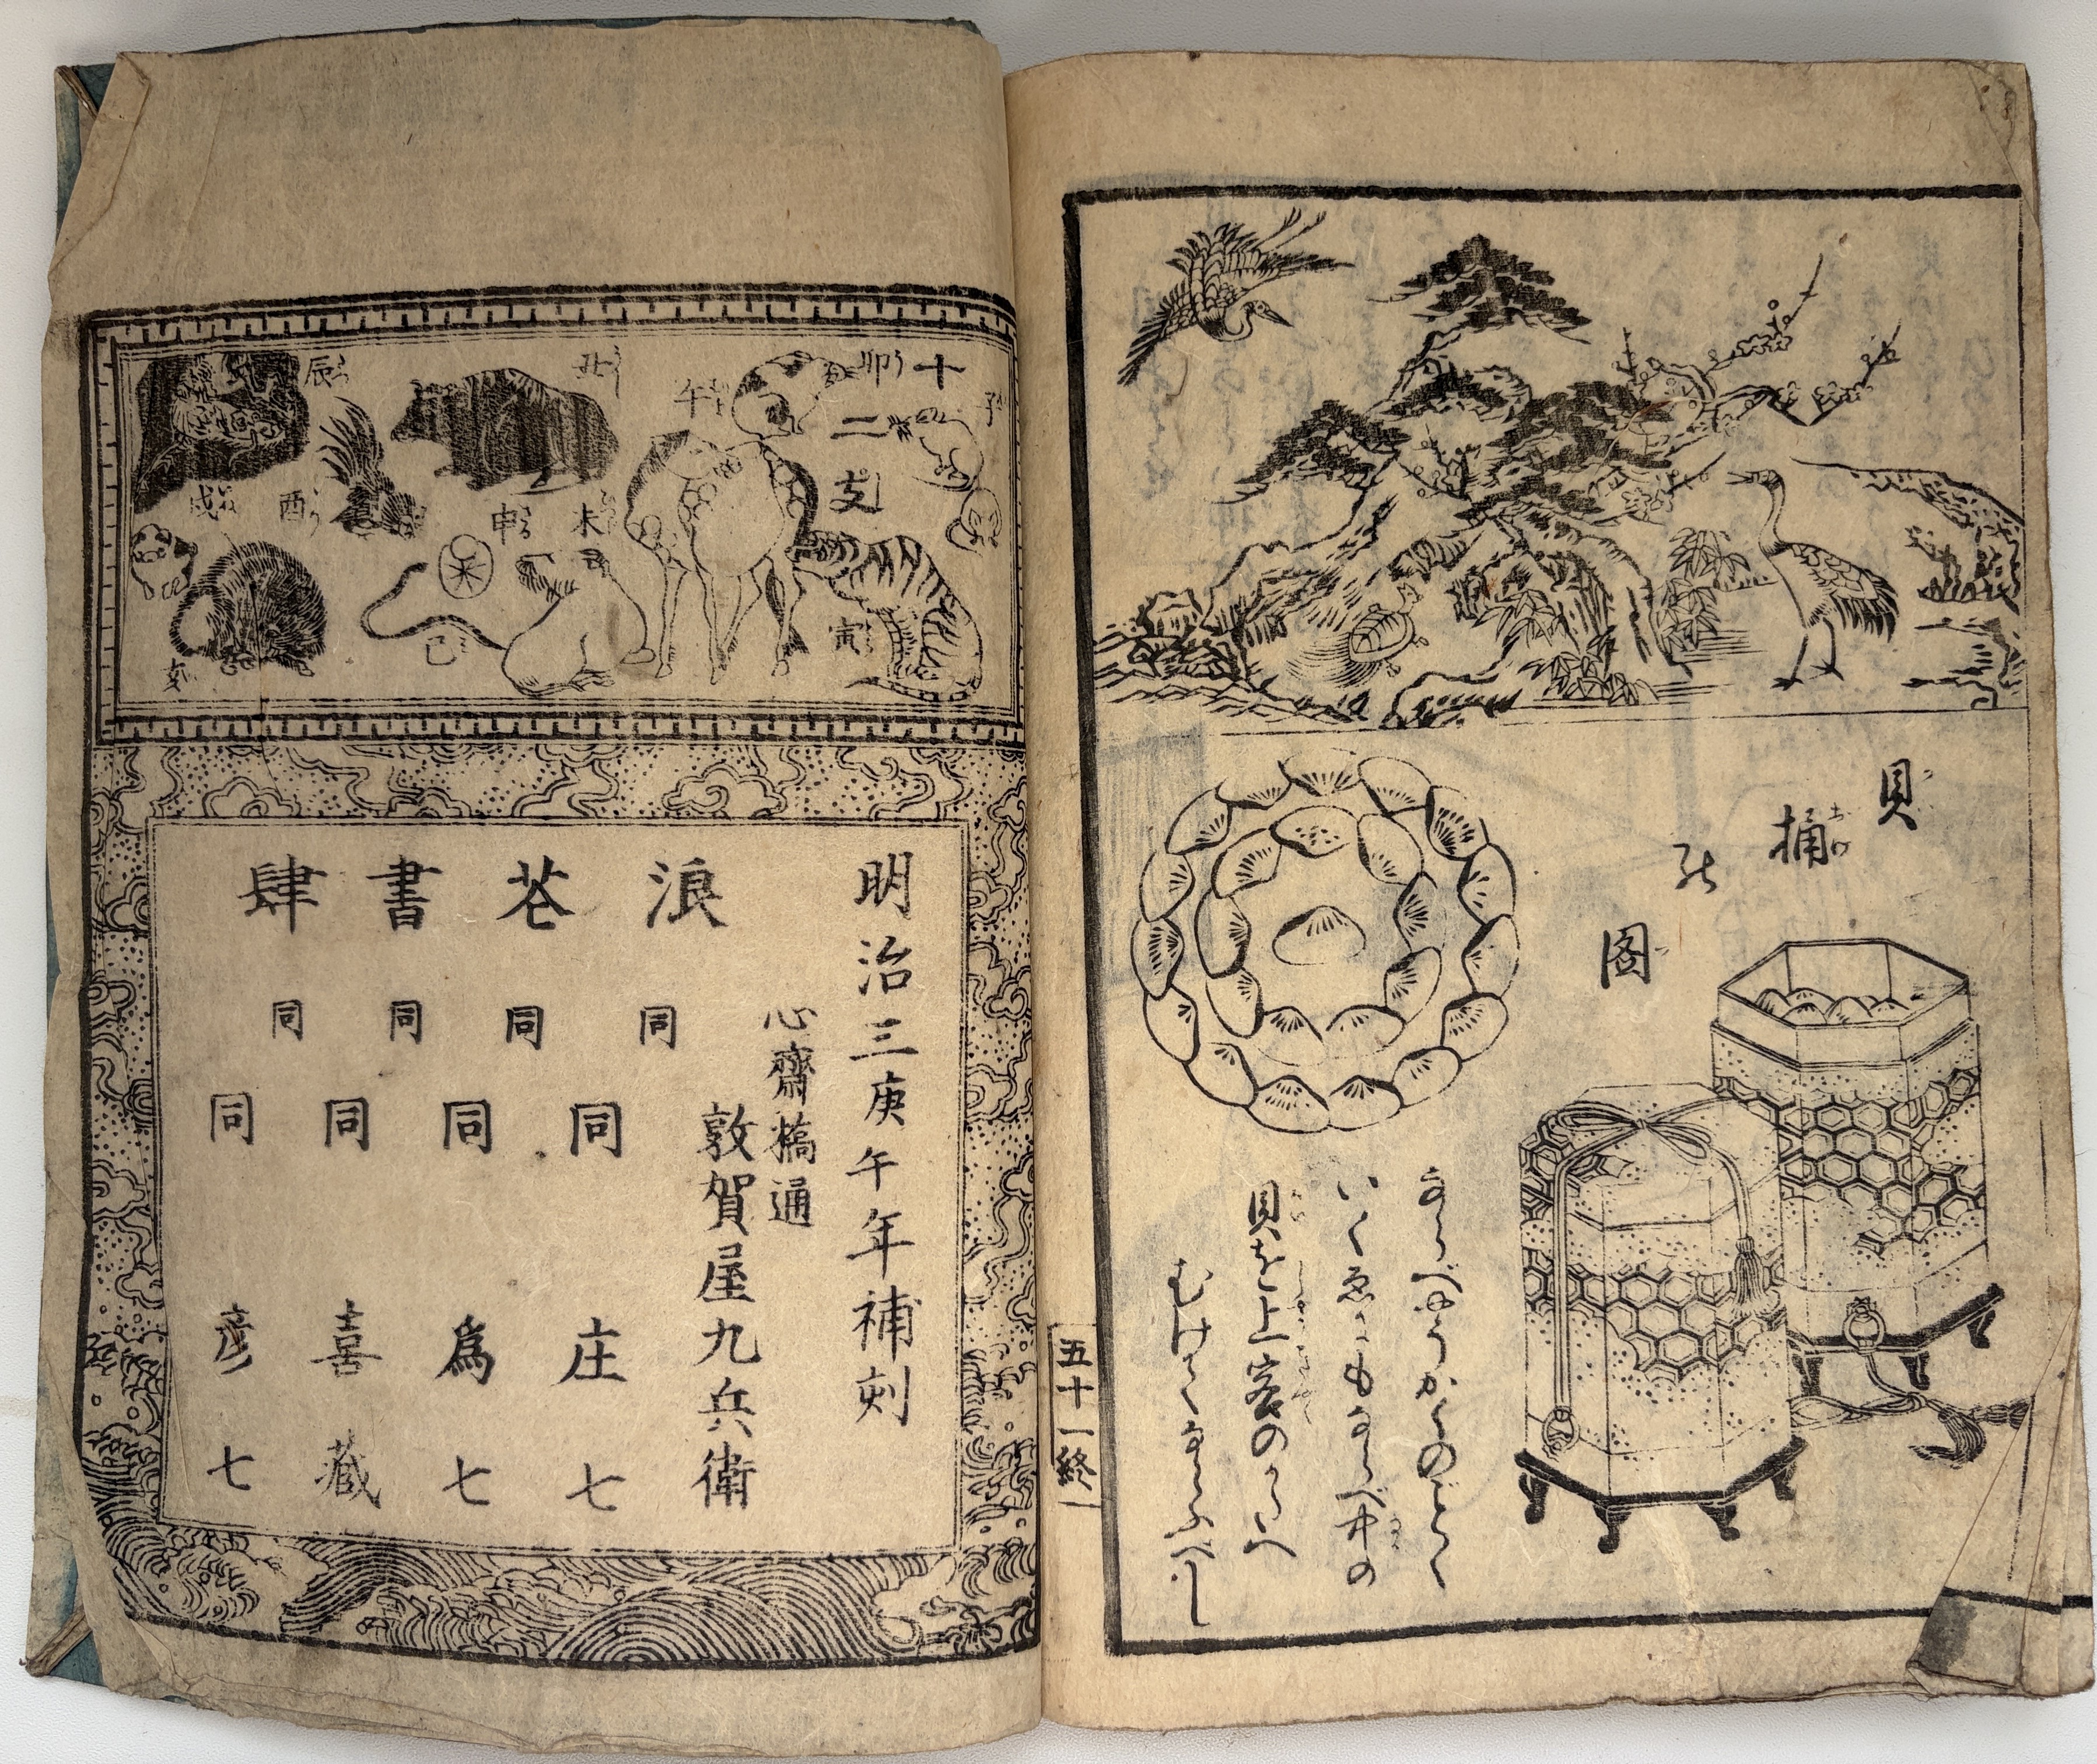 貝
桶
の
図
ならべやうかくのごとく
いくゑにもならべ中の
貝を上客のかたへ
むけてならふべし
五十一終
十二支
子
卯
寅
午
丑
未
申
辰
酉
戌
巳
亥
明治三庚午年補刻
心齋橋通
敦賀屋九兵衛
浪花書肆
同 同 庄七
同 同 為七
同 同 喜藏
同 同 彦七